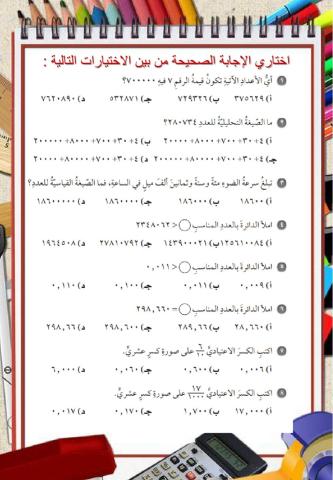 اختاري الإجابة الصحيحة من بين الاختيارات التالية :
١ أيُّ الأعدادِ الآتيةِ تكونُ قيمةُ الرقمِ ٧ فيهِ ٧٠٠٠٠٠؟
أ) ٣٧٥٦٢٩ ب) ٧٢٩٣٢٦ جـ) ٥٣٢٨٧١ د) ٧٦٢٠٨٩٠
٢ ما الصّيغةُ التحليليّةُ للعددِ ٢٨٠٧٣٤؟
أ) ٤+٣٠+٧٠٠+٢٠٠٠٠ ب) ٤+٣٠+٧٠٠+٨٠٠٠+٢٠٠٠٠٠
جـ) ٤+٣٠+٧٠٠+٨٠٠٠+٢٠٠٠٠ د) ٤+٣٠+٧٠٠+٨٠٠٠٠+٢٠٠٠٠٠
٣ تبلغُ سرعةُ الضوءِ مئةً وستةً وثمانينَ ألفَ ميلٍ في الساعةِ، فما الصّيغةُ القياسيّةُ للعددِ؟
أ) ١٨٦٠٠ ب) ١٨٦٠٠٠ جـ) ١٨٦٠٠٠٠ د) ١٨٦٠٠٠٠٠
٤ املأ الدائرةَ بالعددِ المناسبِ > ٢٣٤٨٠٦٢
أ) ١٢٥٦١٠٠٨٤ ب) ١٤٣٩٠٠٠٢١ جـ) ٢٧٨١٠٧٩٢ د) ١٩٦٤٥٠٨
٥ املأ الدائرةَ بالعددِ المناسبِ > ٠,٠١١
أ) ٠,٠٠٩ ب) ٠,٠١١ جـ) ٠,١٠٠ د) ٠,١١٠
٦ املأ الدائرةَ بالعددِ المناسبِ = ٢٩٨,٦٦٠
أ) ٢٨,٦٦٠ ب) ٢٨٩,٦٦ جـ) ٢٩٨,٦٠٠ د) ٢٩٨,٦٦
٧ اكتبِ الكسرَ الاعتياديَّ ٦/١٠ على صورةِ كسرٍ عشريٍّ.
أ) ٠,٠٠٦ ب) ٠,٦٠٠ جـ) ٠,٠٦٠ د) ٦,٠٠٠
٨ اكتبِ الكسرَ الاعتياديَّ ١٧/١٠٠٠ على صورةِ كسرٍ عشريٍّ.
أ) ١٧,٠٠٠ ب) ١,٧٠٠ جـ) ٠,١٧٠ د) ٠,٠١٧